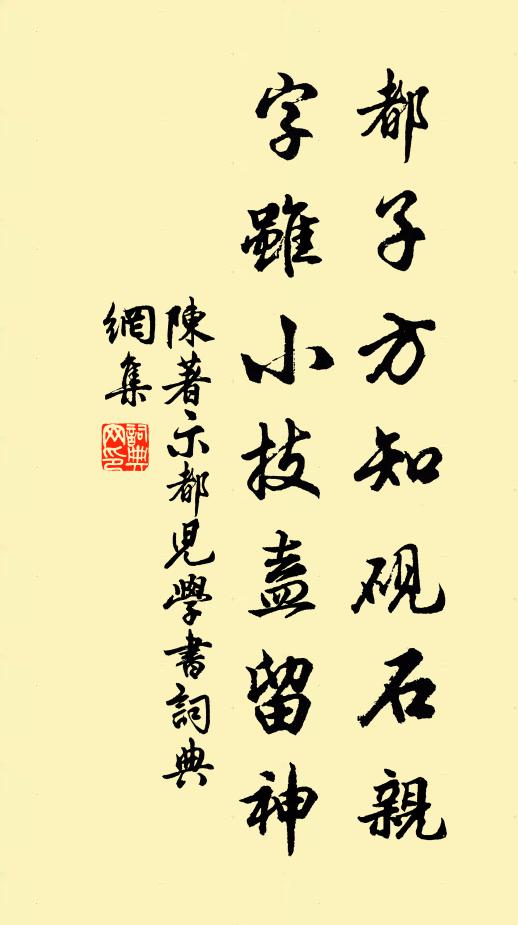 都子方知硯石親
字雖小技盍留神
陳著示都児學書詞典
網集
詞典
网印